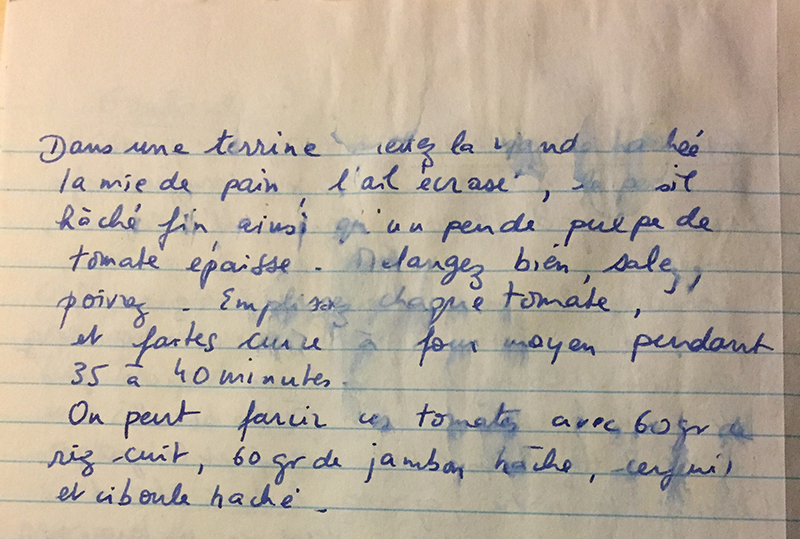 Dans une terrine la hachée
la mie de pain, l'ail écrasé, 
hâché fin ainsi qu'un peu de pulpe de
tomate épaisse. Mélangez bien, salez,
poivrez. Emplissez chaque tomate,
et faites cuire à four moyen pendant
35 à 40 minutes.
On peut farcir ces tomates avec 60 gr de
riz cuit, 60 gr de jambon hâché, cerfeuil
et ciboule haché.